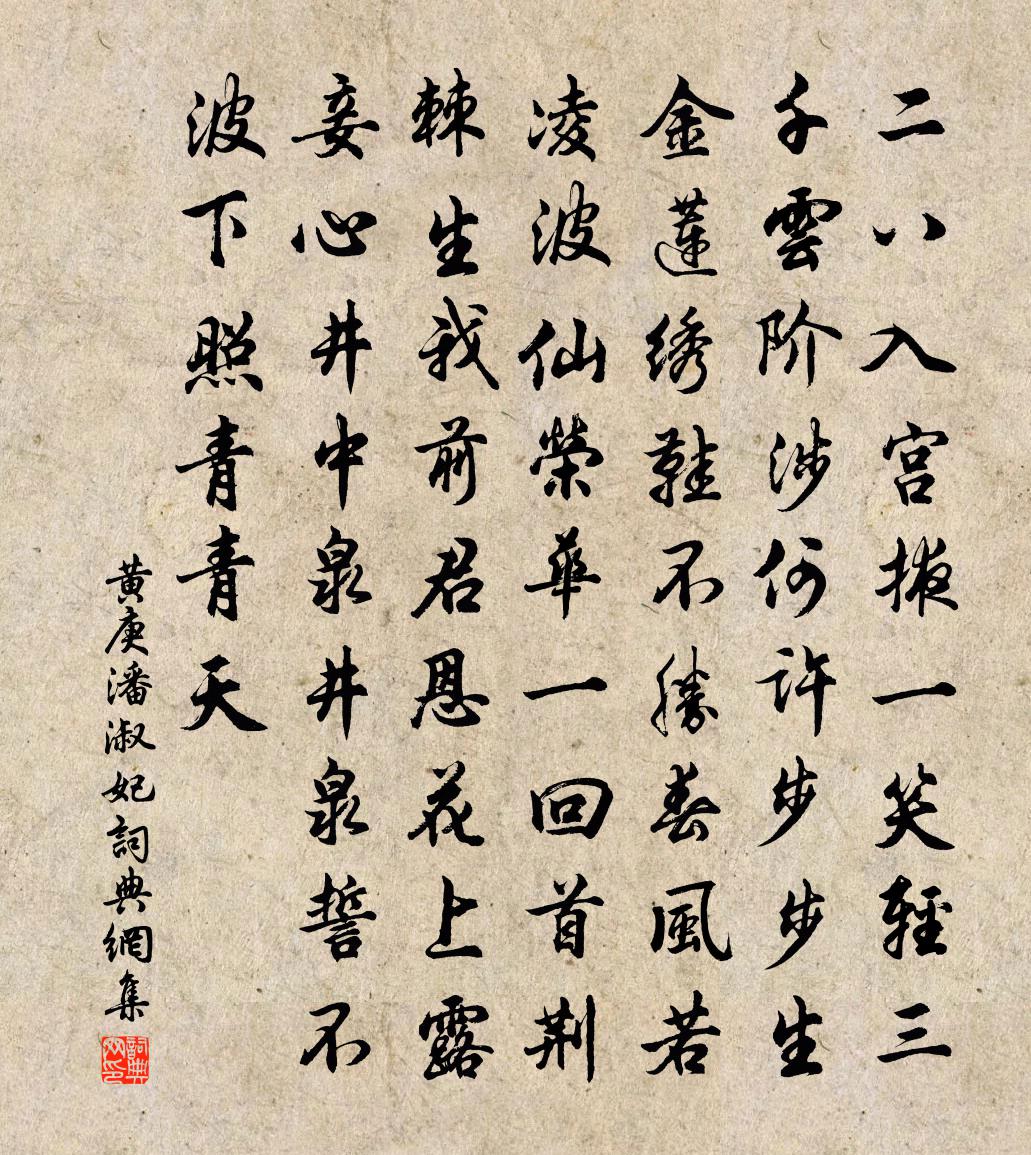 二八入宫掖一笑輕三
千雲阶涉何许步步生
金蓮绣鞋不勝春風若
凌波仙榮華一回首荆
棘生我前君恩花上露
妾心井中泉井泉誓不
波下照青青天
黄庚潘淑妃詞典網集
詞典网印